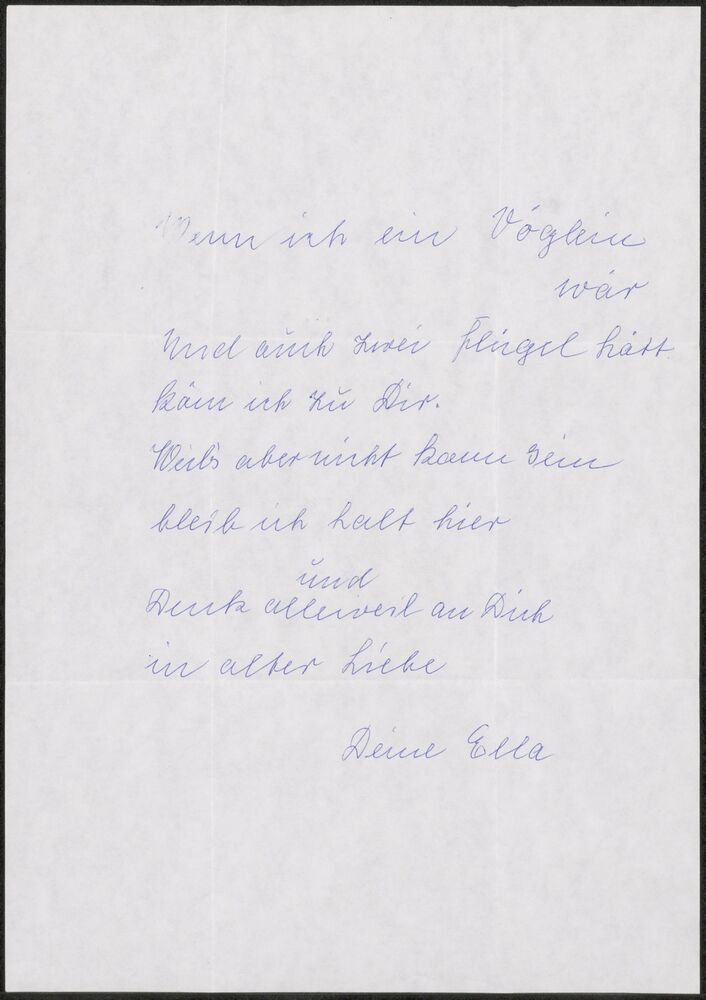 Wenn ich ein Vöglein
wär
Und auch zwei Flügel hätt
käm ich zu Dir.
Weil's aber nicht kann sein
bleib ich halt hier
und
Denk alleweil an Dich
in alter Liebe
Deine Ella